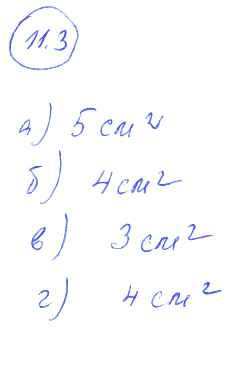 11.3
а) 5 см²
б) 4 см²
в) 3 см²
г) 4 см²